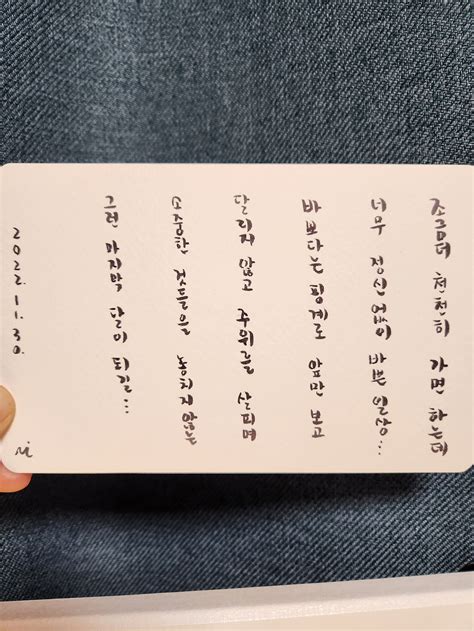 조금 더 천천히 가면 하는데
너무 정신없이 바쁜 일상...
바쁘다는 핑계로 앞만 보고
달리지 않고 주위를 살피며
소중한 것들을 놓치지 않는
그런 마지막 달이 되길...
2022. 11. 30.